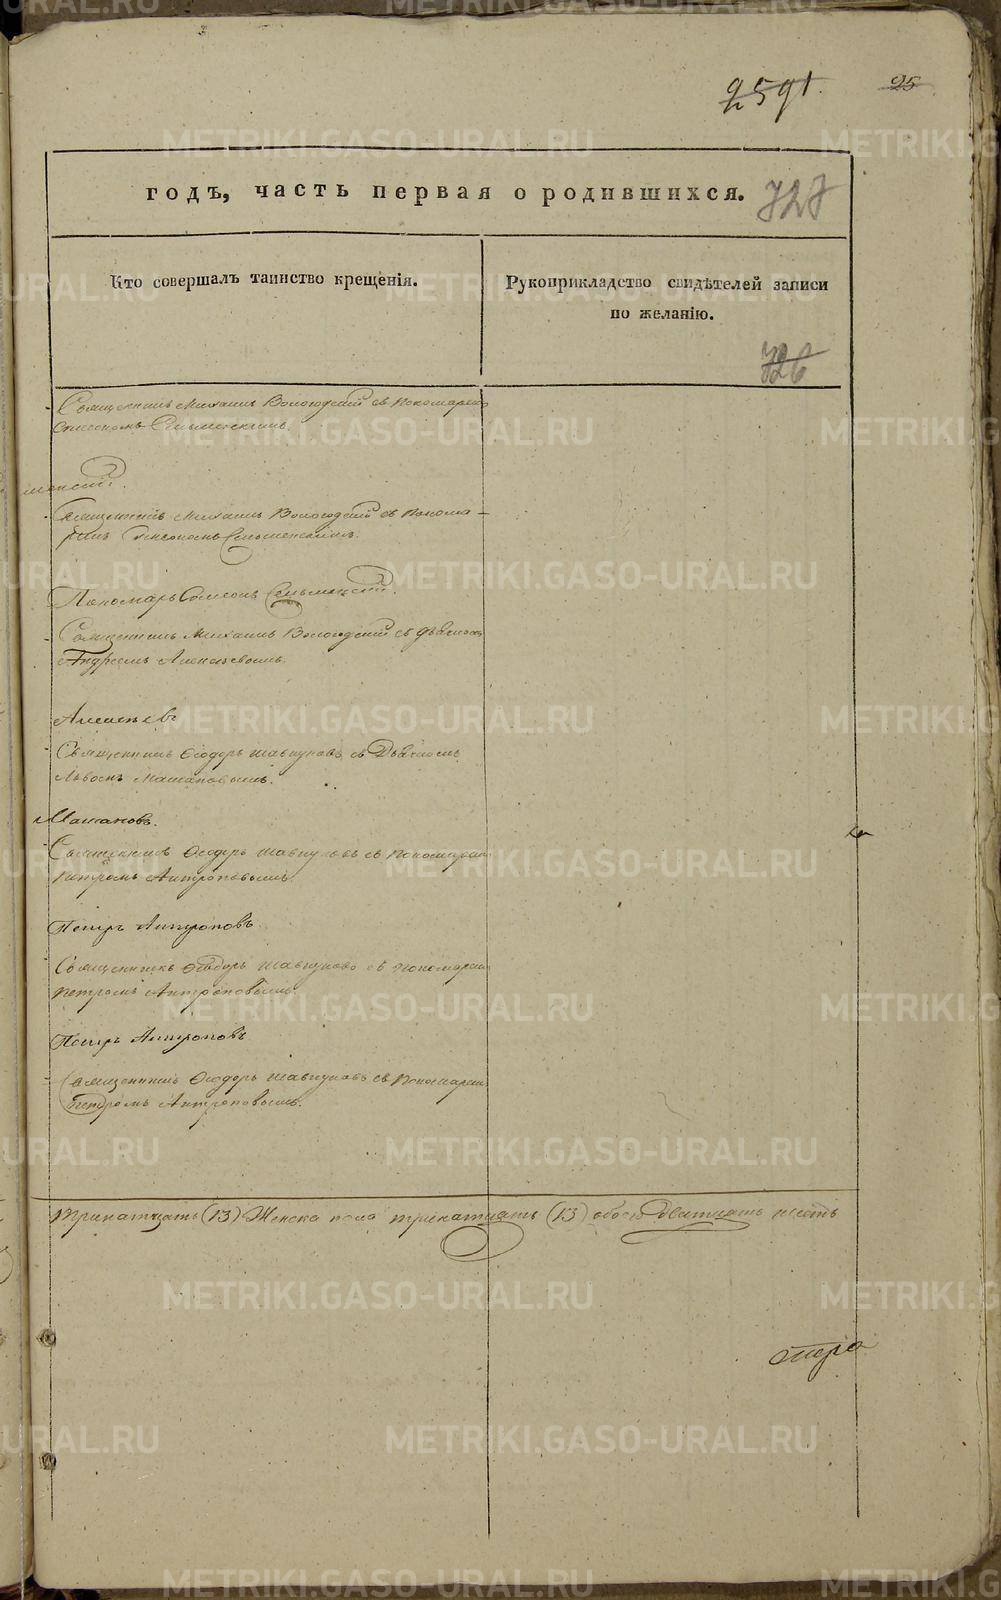 2591.
25
годъ, часть первая о родившихся.
727
Кто совершалъ таинство крещенія.
Рукоприкладство свидѣтелей записи
по желанію.
726
Священникъ Михаилъ Вологодскій съ Пономаремъ
менскій.
Священникъ Михаилъ Вологодскій съ Понома-
ремъ
Пономарь
Священникъ Михаилъ Вологодскій съ дьячкомъ
Андреемъ Алексѣевымъ.
Священникъ Ѳеодоръ Шавкуновъ съ Дьячкомъ
Машановымъ.
Машановъ.
Священникъ Ѳеодоръ Шавкуновъ съ пономаремъ
Петромъ Антроповымъ
Петръ Антроповъ
Священникъ Ѳеодоръ Шавкуновъ съ пономаремъ
Петромъ Антроповымъ
Петръ Антроповъ
Священникъ Ѳеодоръ Шавкуновъ съ Пономаремъ
Петромъ Антроповымъ.
тринатцать (13) Женска пола тринатцать (13) обоего Дватцать шесть
METRIKI.GASO-URAL.RU